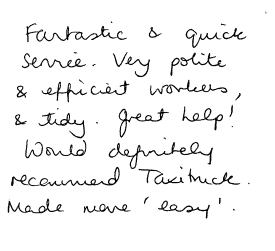 Fantastic & quick
Service. Very polite
& efficient workers,
& tidy. Great help!
Would definitely
recommend Taxitruck.
Made move 'easy'.